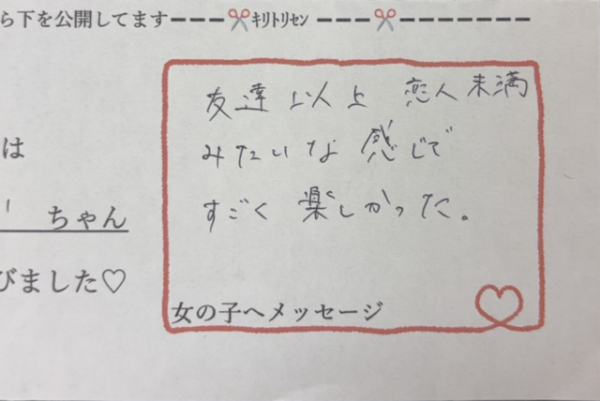 ら下を公開してます---✂ｷﾘﾄﾘｾﾝ---✂-------
友達以上 恋人未満
みたいな感じで
すごく楽しかった。
は
ちゃん
びました♡
女の子へメッセージ